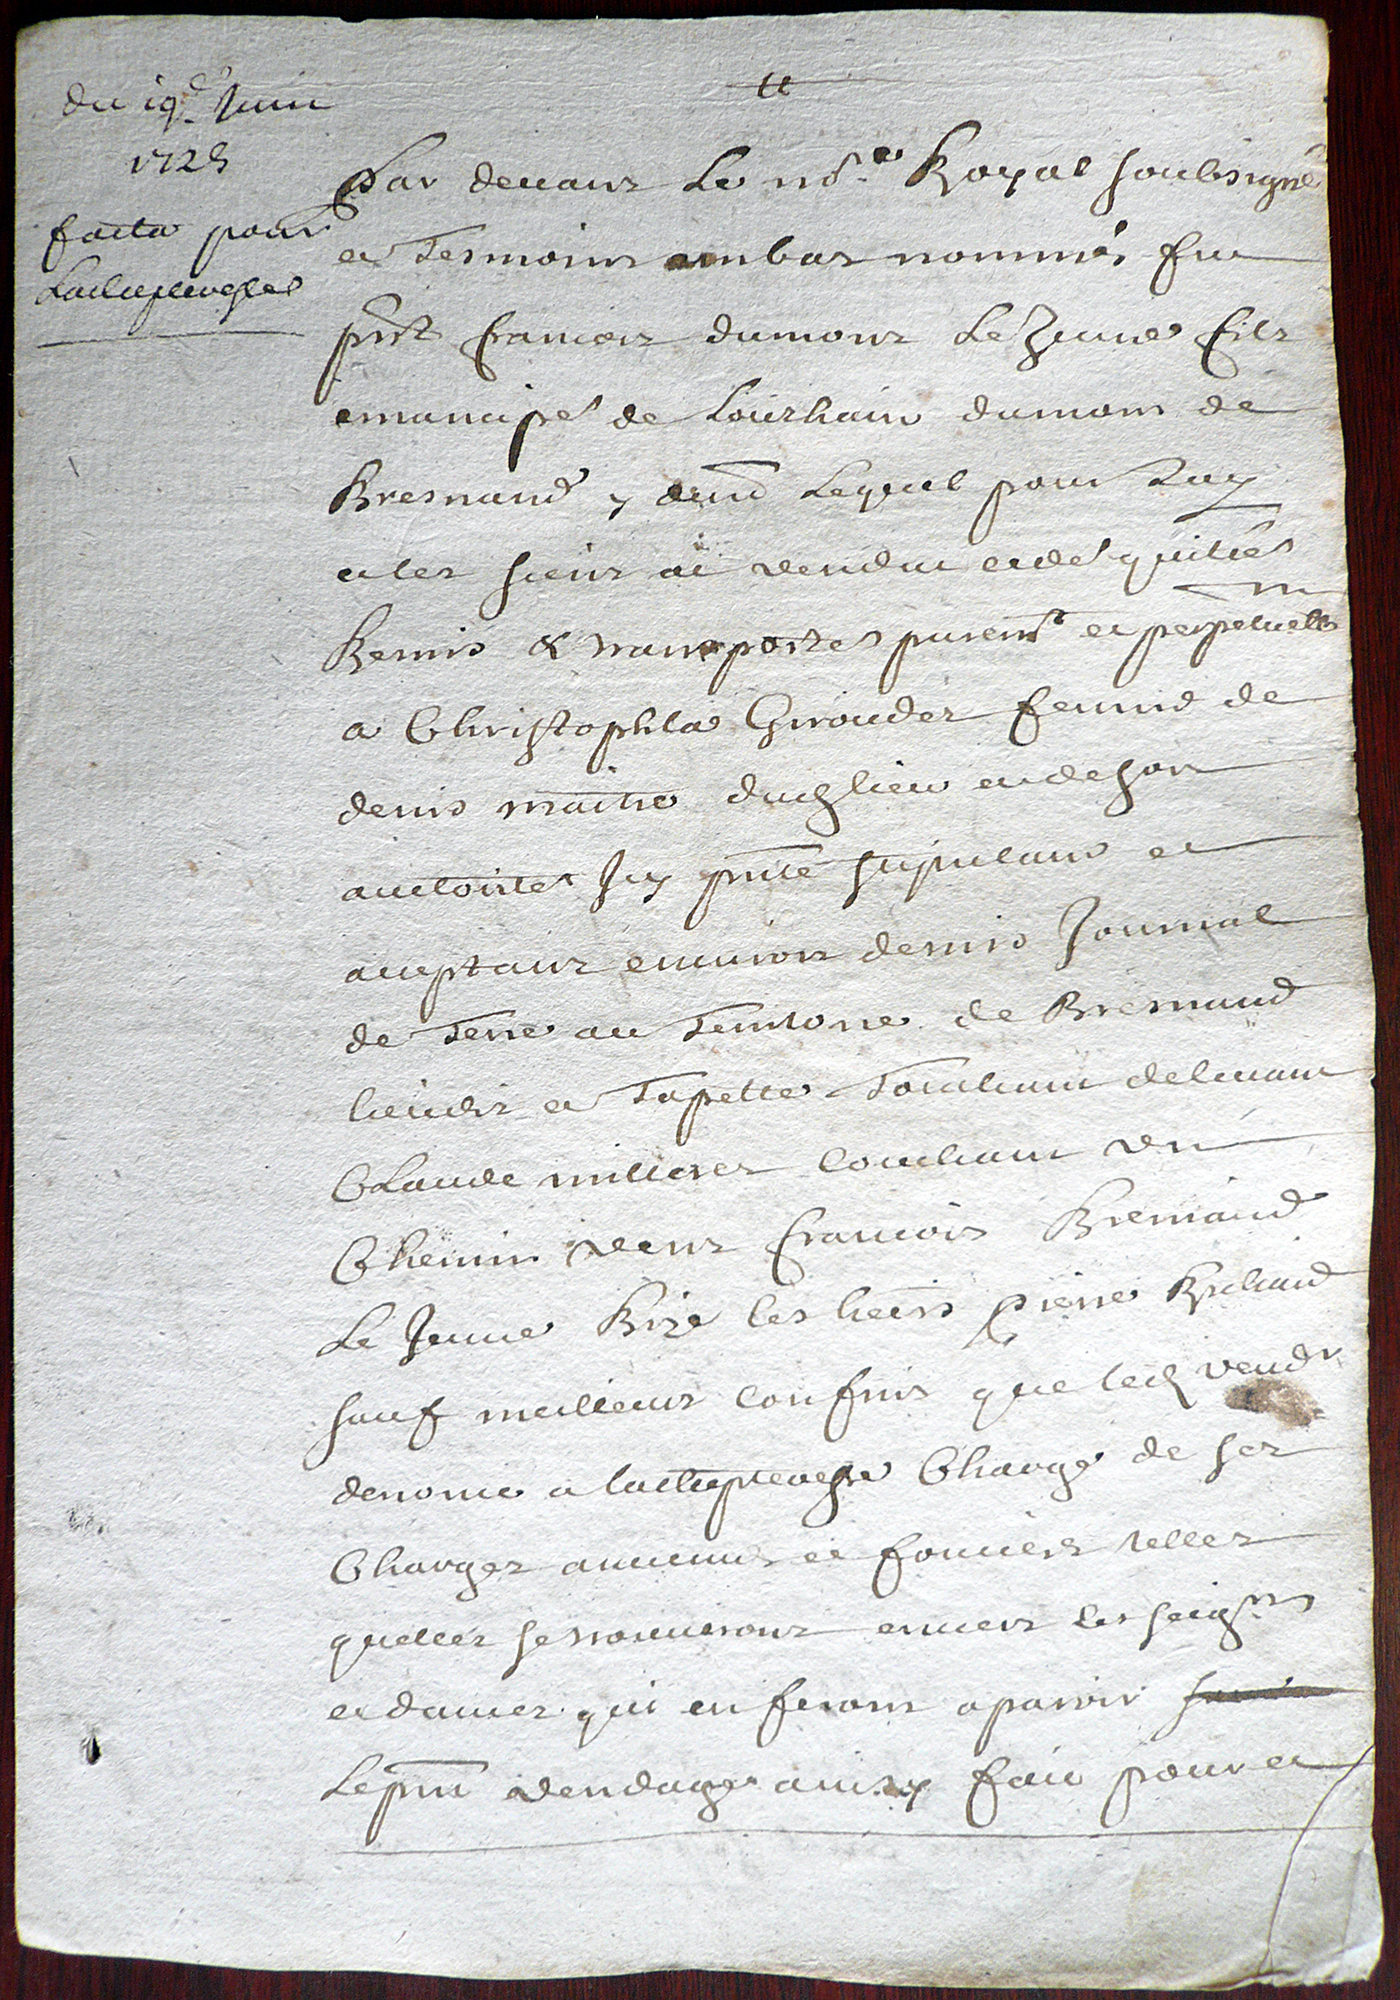 du 19e Juin
1725
facta pour
Lachepteresse
Par devant Le nore Royal soubsigné
et Tesmoins embas nommés fut
prnt francois dumont Le Jeune fils
emancipé de Lourhain dumont de
Bresnand y demt Lequel pour Luy
et les siens at vendu cedé quitté
Remis & transportes puremt et perpetuellemt
a Christophla Giroudet femme de
denis maitre dudlieu et de son
auctorité Icy pnte stipulant et
aceptant environ demis Journal
de Terre au Territoire de Bremand
lieudit a Tapette Touchant deluant
Claude milleret Couchant un
Chemin vent francois Bremand
Le Jeune Bize les heers pierre Richard
sauf meilleurs confins que led vendr
denomé a lachepteresse Chargé de ses
Charges anciennes et foncieres telles
quelles se trouueront enuers les seigrs
et dames qui en feront aparoir
Le pnt vendage ainsy fait pour et